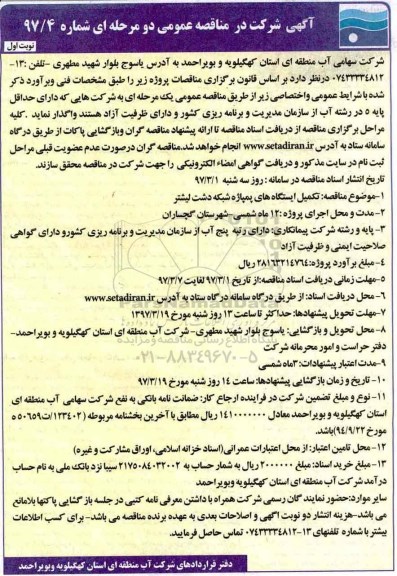 آگهی شرکت در مناقصه عمومی دو مرحله ای شماره ۹۷/۴
نوبت اول
شرکت سهامی آب منطقه ای استان کهگیلویه و بویراحمد به آدرس یاسوج بلوار شهید مطهری -تلفن :۱۳-
۰۷۴۳۳۳۳۴۸۱۲ درنظر دارد بر اساس قانون برگزاری مناقصات پروژه زیر را طبق مشخصات فنی وبرآورد ذکر
شده با شرایط عمومی واختصاصی زیر از طریق مناقصه عمومی یک مرحله ای به شرکت هایی که دارای حداقل
پایه ۵ در رشته آب از سازمان مدیریت و برنامه ریزی کشور و دارای ظرفیت آزاد هستند واگذار نماید .کلیه
مراحل برگزاری مناقصه از دریافت اسناد مناقصه تا ارائه پیشنهاد مناقصه گران وبازگشایی پاکات از طریق درگاه
سامانه ستاد به آدرس www.setadiran.ir انجام خواهد شد.مناقصه گران درصورت عدم عضویت قبلی مراحل
ثبت نام در سایت مذکور و دریافت گواهی امضاء الکترونیکی را جهت شرکت در مناقصه محقق سازند.
تاریخ انتشار اسناد مناقصه در سامانه : روز سه شنبه ۹۷/۳/۱
۱-موضوع مناقصه: تکمیل ایستگاه های پمپاژیه شبکه دشت لیشتر
۲-مدت و محل اجرای پروژه :۱۲ ماه شمسی -شهرستان گچساران
۳- پایه و رشته شرکت پیمانکاری: دارای رتبه پنج آب از سازمان مدیریت و برنامه ریزی کشورو دارای گواهی
صلاحیت ایمنی و ظرفیت آزاد
۴-مبلغ برآورد پروژه:۲۸۱۶۳۲۱۴۷۶۴ ریال
۵-مهلت زمانی دریافت اسناد مناقصه:از تاریخ ۹۷/۳/۱ لغایت ۹۷/۳/۷
۶- محل دریافت اسناد: از طریق درگاه سامانه درگاه ستاد به آدرس www.setadiran.ir
۷-مهلت تحویل پیشنهادها: حداکثر تا ساعت ۱۳ روز شنبه مورخ ۱۳۹۷/۳/۱۹
۸- محل تحویل و بازگشایی: یاسوج بلوار شهید مطهری- شرکت آب منطقه ای استان کهگیلویه و بویراحمد-
دفتر حراست و امور محرمانه شرکت
۹-مدت اعتبار پیشنهادات:۳ماه شمسی
۱۰- تاریخ و زمان بازگشایی پیشنهادها: ساعت ۱۴ روز شنبه مورخ ۹۷/۳/۱۹
۱۱- نوع و مبلغ تضمین شرکت در فرآینده ارجاع کار: ضمانت نامه بانکی به نفع شرکت سهامی آب منطقه ای
استان کهگیلویه و بویراحمد معادل ۱۴۱۰۰۰۰۰۰۰ ریال مطابق با آخرین بخشنامه مربوطه (۱۲۳۴۰۲/ت۵۰۶۵۹ ه
مورخ ۹۴/۹/۲۲)باشد.
۱۲-محل تامین اعتبار: از محل اعتبارات عمرانی(اسناد خزانه اسلامی، اوراق مشارکت و غیره)
۱۳-مبلغ خرید اسناد: مبلغ ۲۰۰۰۰۰۰ ریال به شمار حساب به ۲۱۷۵۰۸۴۰۳۲۰۰۲ سیبا نزد بانک ملی به نام حساب
درآمد شرکت آب منطقه ای استان کهگیلویه وبویراحمد
سایر موارد:حضور نمایندگان رسمی شرکت همراه با داشتن معرفی نامه کتبی در جلسه بازگشایی پاکتها بلامانع
می باشد-هزینه انتشار دو نوبت آگهی و اصلاحات بعدی به عهده برنده مناقصه می باشد- برای کسب اطلاعات
بیشتر با شماره تلفنهای ۱۳-۰۷۴۳۳۳۳۴۸۱۲ تماس حاصل فرمایید.
دفتر قراردادهای شرکت آب منطقه ای استان کهگیلویه وبویراحمد
۰۲۱-۸۸۳۴۹۶۷۰-۵